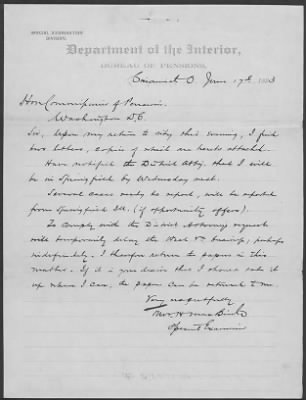 SPECIAL EXAMINATION
DIVISION.
Department of the Interior,
BUREAU OF PENSIONS,
Cincinnati O June 17th, 1883
Hon Commissioner of Pensions.
Washington D.C.
Sir, Upon my return to city this evening, I find
two letters, copies of which are hereto attached.
Have notified the District Atty. that I will
be in Springfield by Wednesday next.
Several cases nearly be report, will be reported
from Springfield Ill. (if opportunity offers).
To comply with the District Attorneys request
will temporarily delay the West Va. hearings, perhaps
indefinitely. I therefore return to papers in this
matter. If it is your desire that I should take it
up where I can, the papers can be returned to me.
Very respectfully
Special Examiner